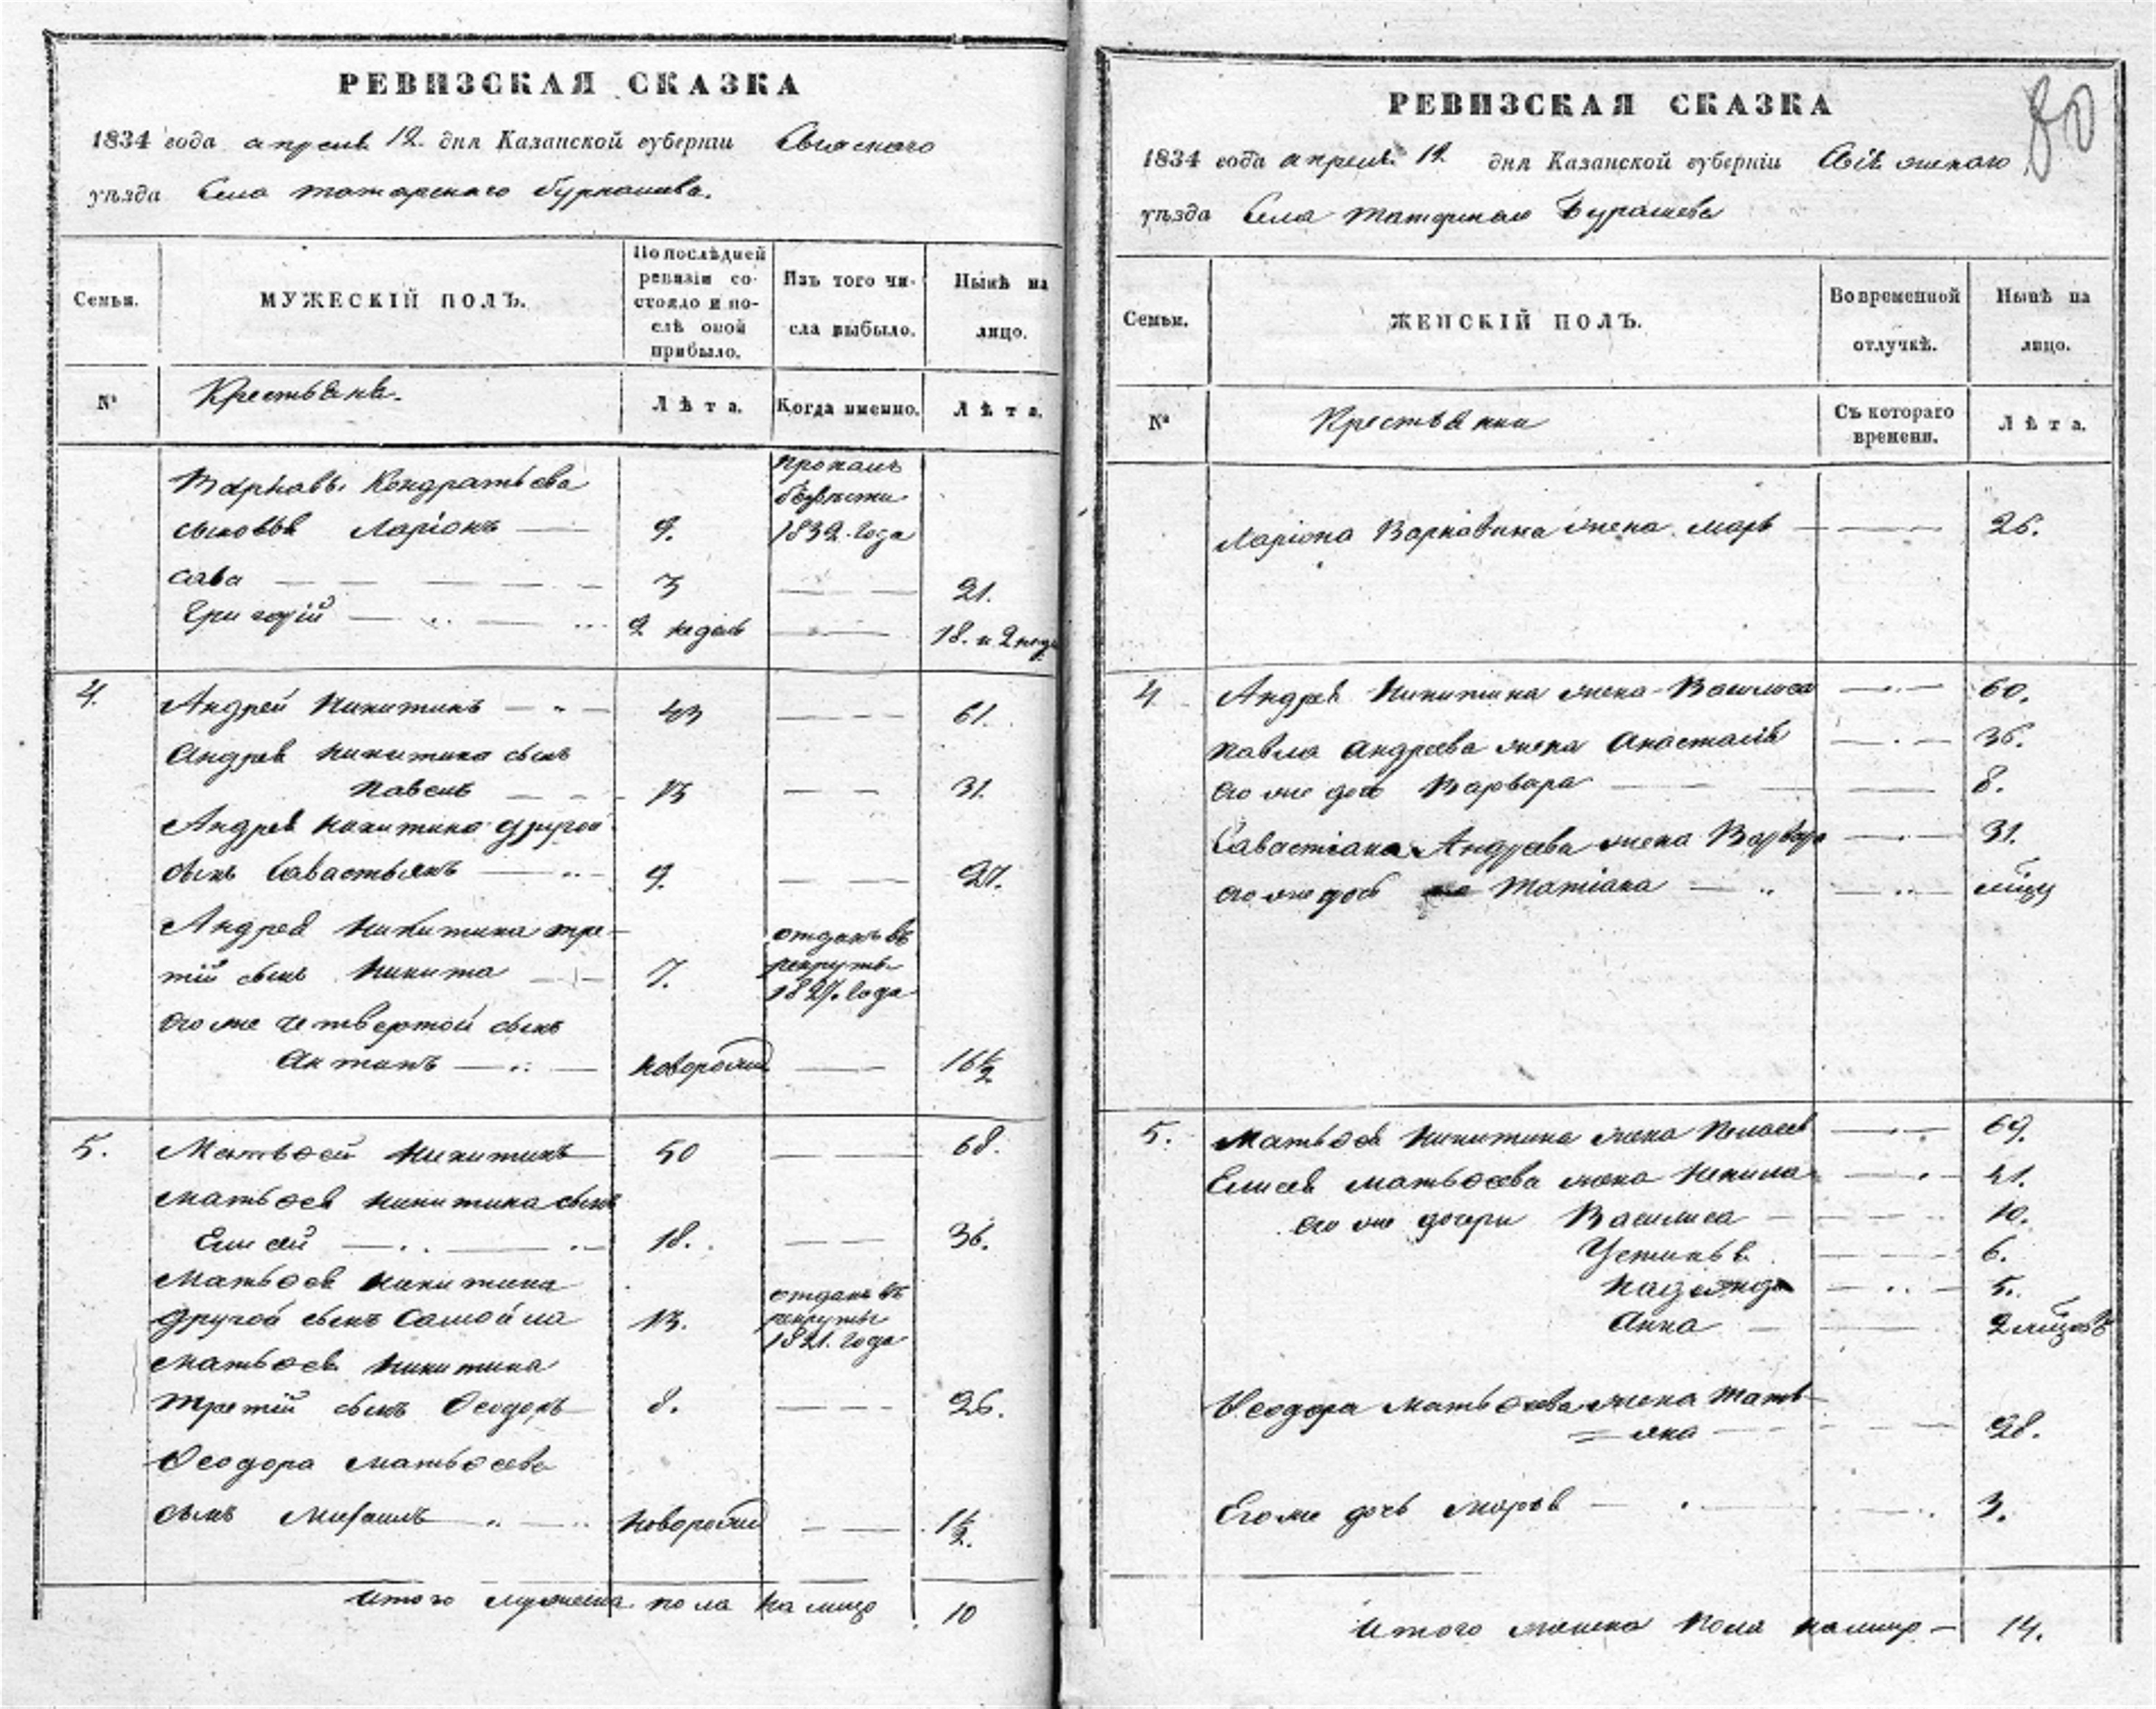 РЕВИЗСКАЯ СКАЗКА
1834 года апреля 12. дня Казанской губерніи Свіяского
уѣзда Села татарскаго бурнашева.
Семьи.
МУЖЕСКІЙ ПОЛЪ.
По послѣдней ревизіи состояло и послѣ оной прибыло.
Изъ того числа выбыло.
Нынѣ на лицо.
№
Крестьяне.
Лѣта.
Когда именно.
Лѣта.
Варнавы Кондратьева пропалъ
безвѣсти
сыновья Ларіонъ 9. 1832. года
Сава 3 21.
Григорій 2 недель 18. и 2 неде
4. Андрей Никитинъ 43 61.
Андрея Никитина сынъ
Павелъ 13 31.
Андрея Никитина другой
сынъ Савастьянъ 9. 27.
Андрея Никитина тре- отданъ въ
тій сынъ Никита 7. рекруты
1827. года
его же четвертой сынъ
Антипъ новорожд 16 ½
5. Матьѳей Никитинъ 50 68.
Матьѳея Никитина сынъ
Елисей 18. 36.
Матьѳея Никитина отданъ въ
другой сынъ Самойла 13. рекруты
1821. года
Матьѳея Никитина
третій сынъ Ѳеодоръ 8. 26.
Ѳеодора Матьѳеева
сынъ Михаилъ новорожд 1 ½.
Итого мужеска пола на лицо 10
80
РЕВИЗСКАЯ СКАЗКА
1834 года апреля 12 дня Казанской губерніи Свіяжскаго
уѣзда Села татарскаго Бурашева
Семьи.
ЖЕНСКІЙ ПОЛЪ.
Во временной отлучкѣ.
Нынѣ на лицо.
№
Крестьянки
Съ котораго времени.
Лѣта.
Ларіона Варнавина жена Марья 26.
4 Андрея Никитина жена Василиса 60.
Павла Андреева жена Анастасія 36.
его же дочь Варвара 8.
Савастіана Андреева жена Варвара 31.
его же дочь Татіана
5. Матьѳея Никитина жена Пелагея 69.
Елисея Матьѳеева жена Ненила 41.
его же дочери Василиса 10.
Устинья 6.
Надежда 5.
Анна 2 мѣсяцовъ
Ѳеодора Матьѳеева жена Тать-
яна 28.
Его же дочь Марья 3.
Итого женска пола на лицо 14.